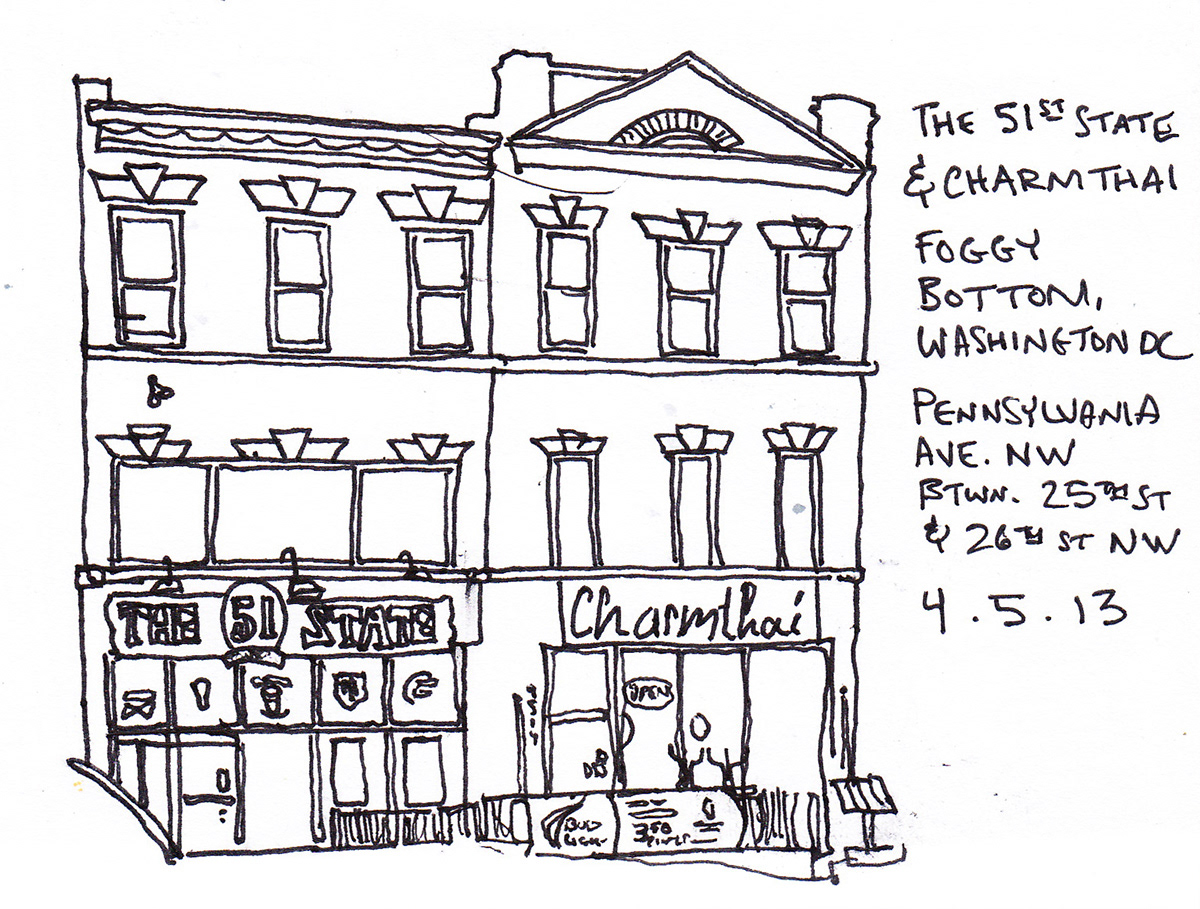 THE 51ST STATE
& CHARMTHAI
FOGGY
BOTTOM,
WASHINGTON DC
PENNSYLVANIA
AVE. NW
BTWN. 25TH ST
& 26TH ST NW
4.5.13
THE 51 STATE
Charmthai
OPEN
BUD
LIGHT